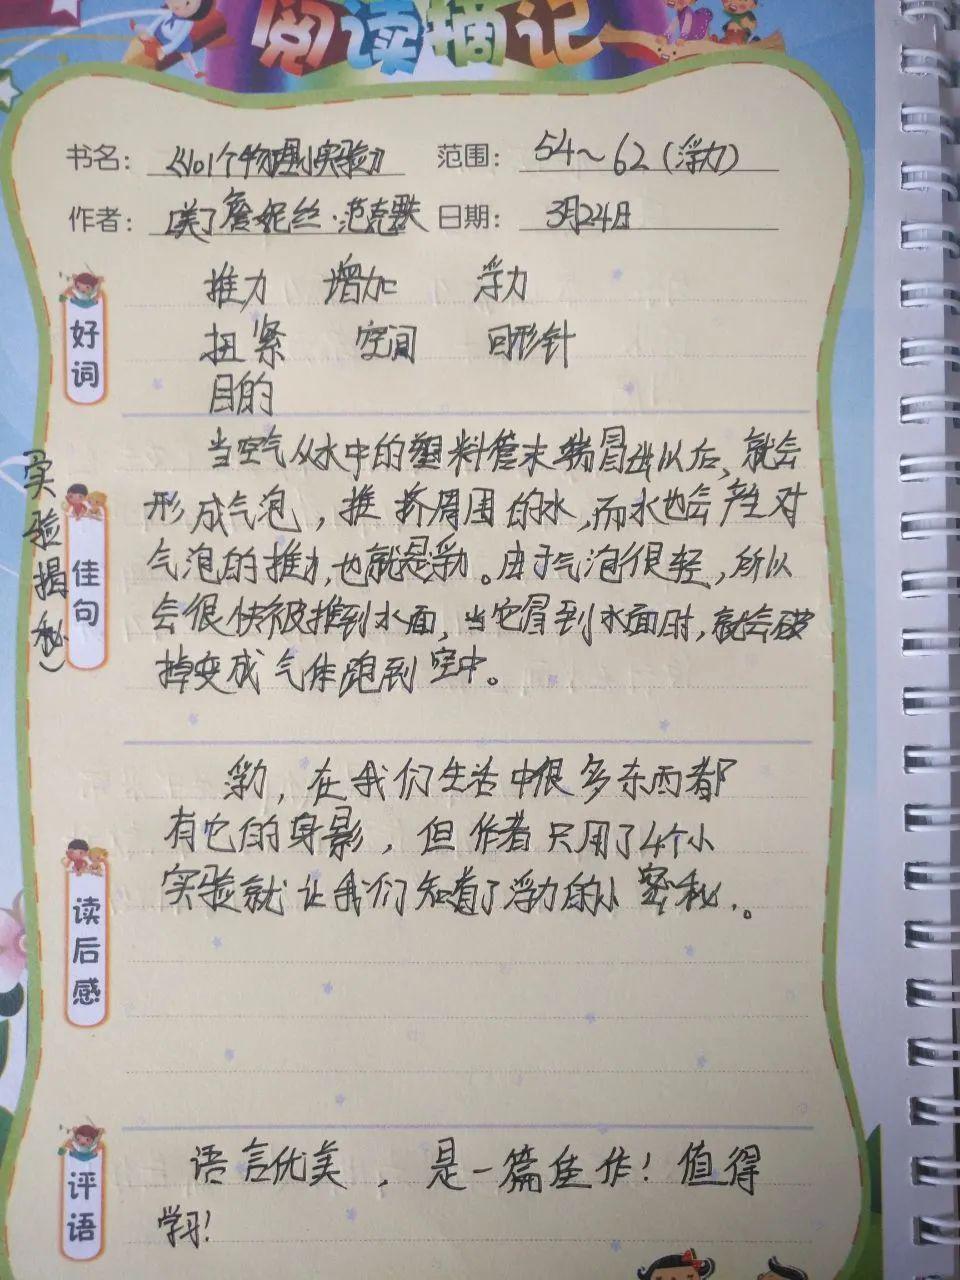 阅读摘记
书名：《101个物理小实验》 范围：54~62（浮力）
作者：[美]詹妮丝·范克里 日期：3月24日
好词
推力 增加 浮力
扭紧 空间 回形针
目的
佳句
（实验揭秘）
当空气从水中的塑料管末端冒出以后，就会
形成气泡，推挤周围的水，而水也会产生对
气泡的推力，也就是浮力。由于气泡很轻，所以
会很快被推到水面，当它冒到水面时，就会破
掉变成气体跑到空中。
读后感
浮力，在我们生活中很多东西都
有它的身影，但作者只用了4个小
实验就让我们知道了浮力的小密秘.。
评语
语言优美，是一篇佳作！值得
学习！